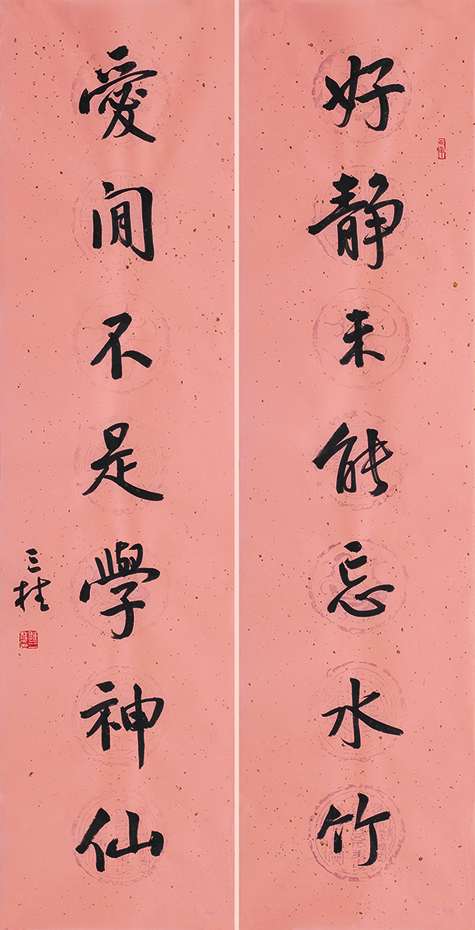 好静未能忘水竹
愛閒不是學神仙
三桂